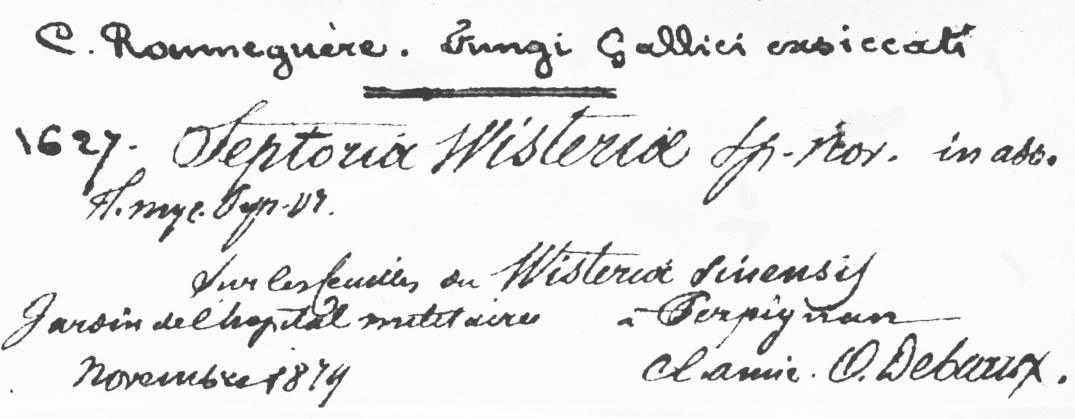 C. Roumeguère. Fungi Gallici exsiccati
1627. Septoria Wisteriæ Sp. Nov. in add.
Fl. myc. Pyr. Or.
Sur les feuilles du Wisteria Sinensis
Jardin de l'hopital militaire à Perpignan
Novembre 1879 cl. amic. O. Debeaux.